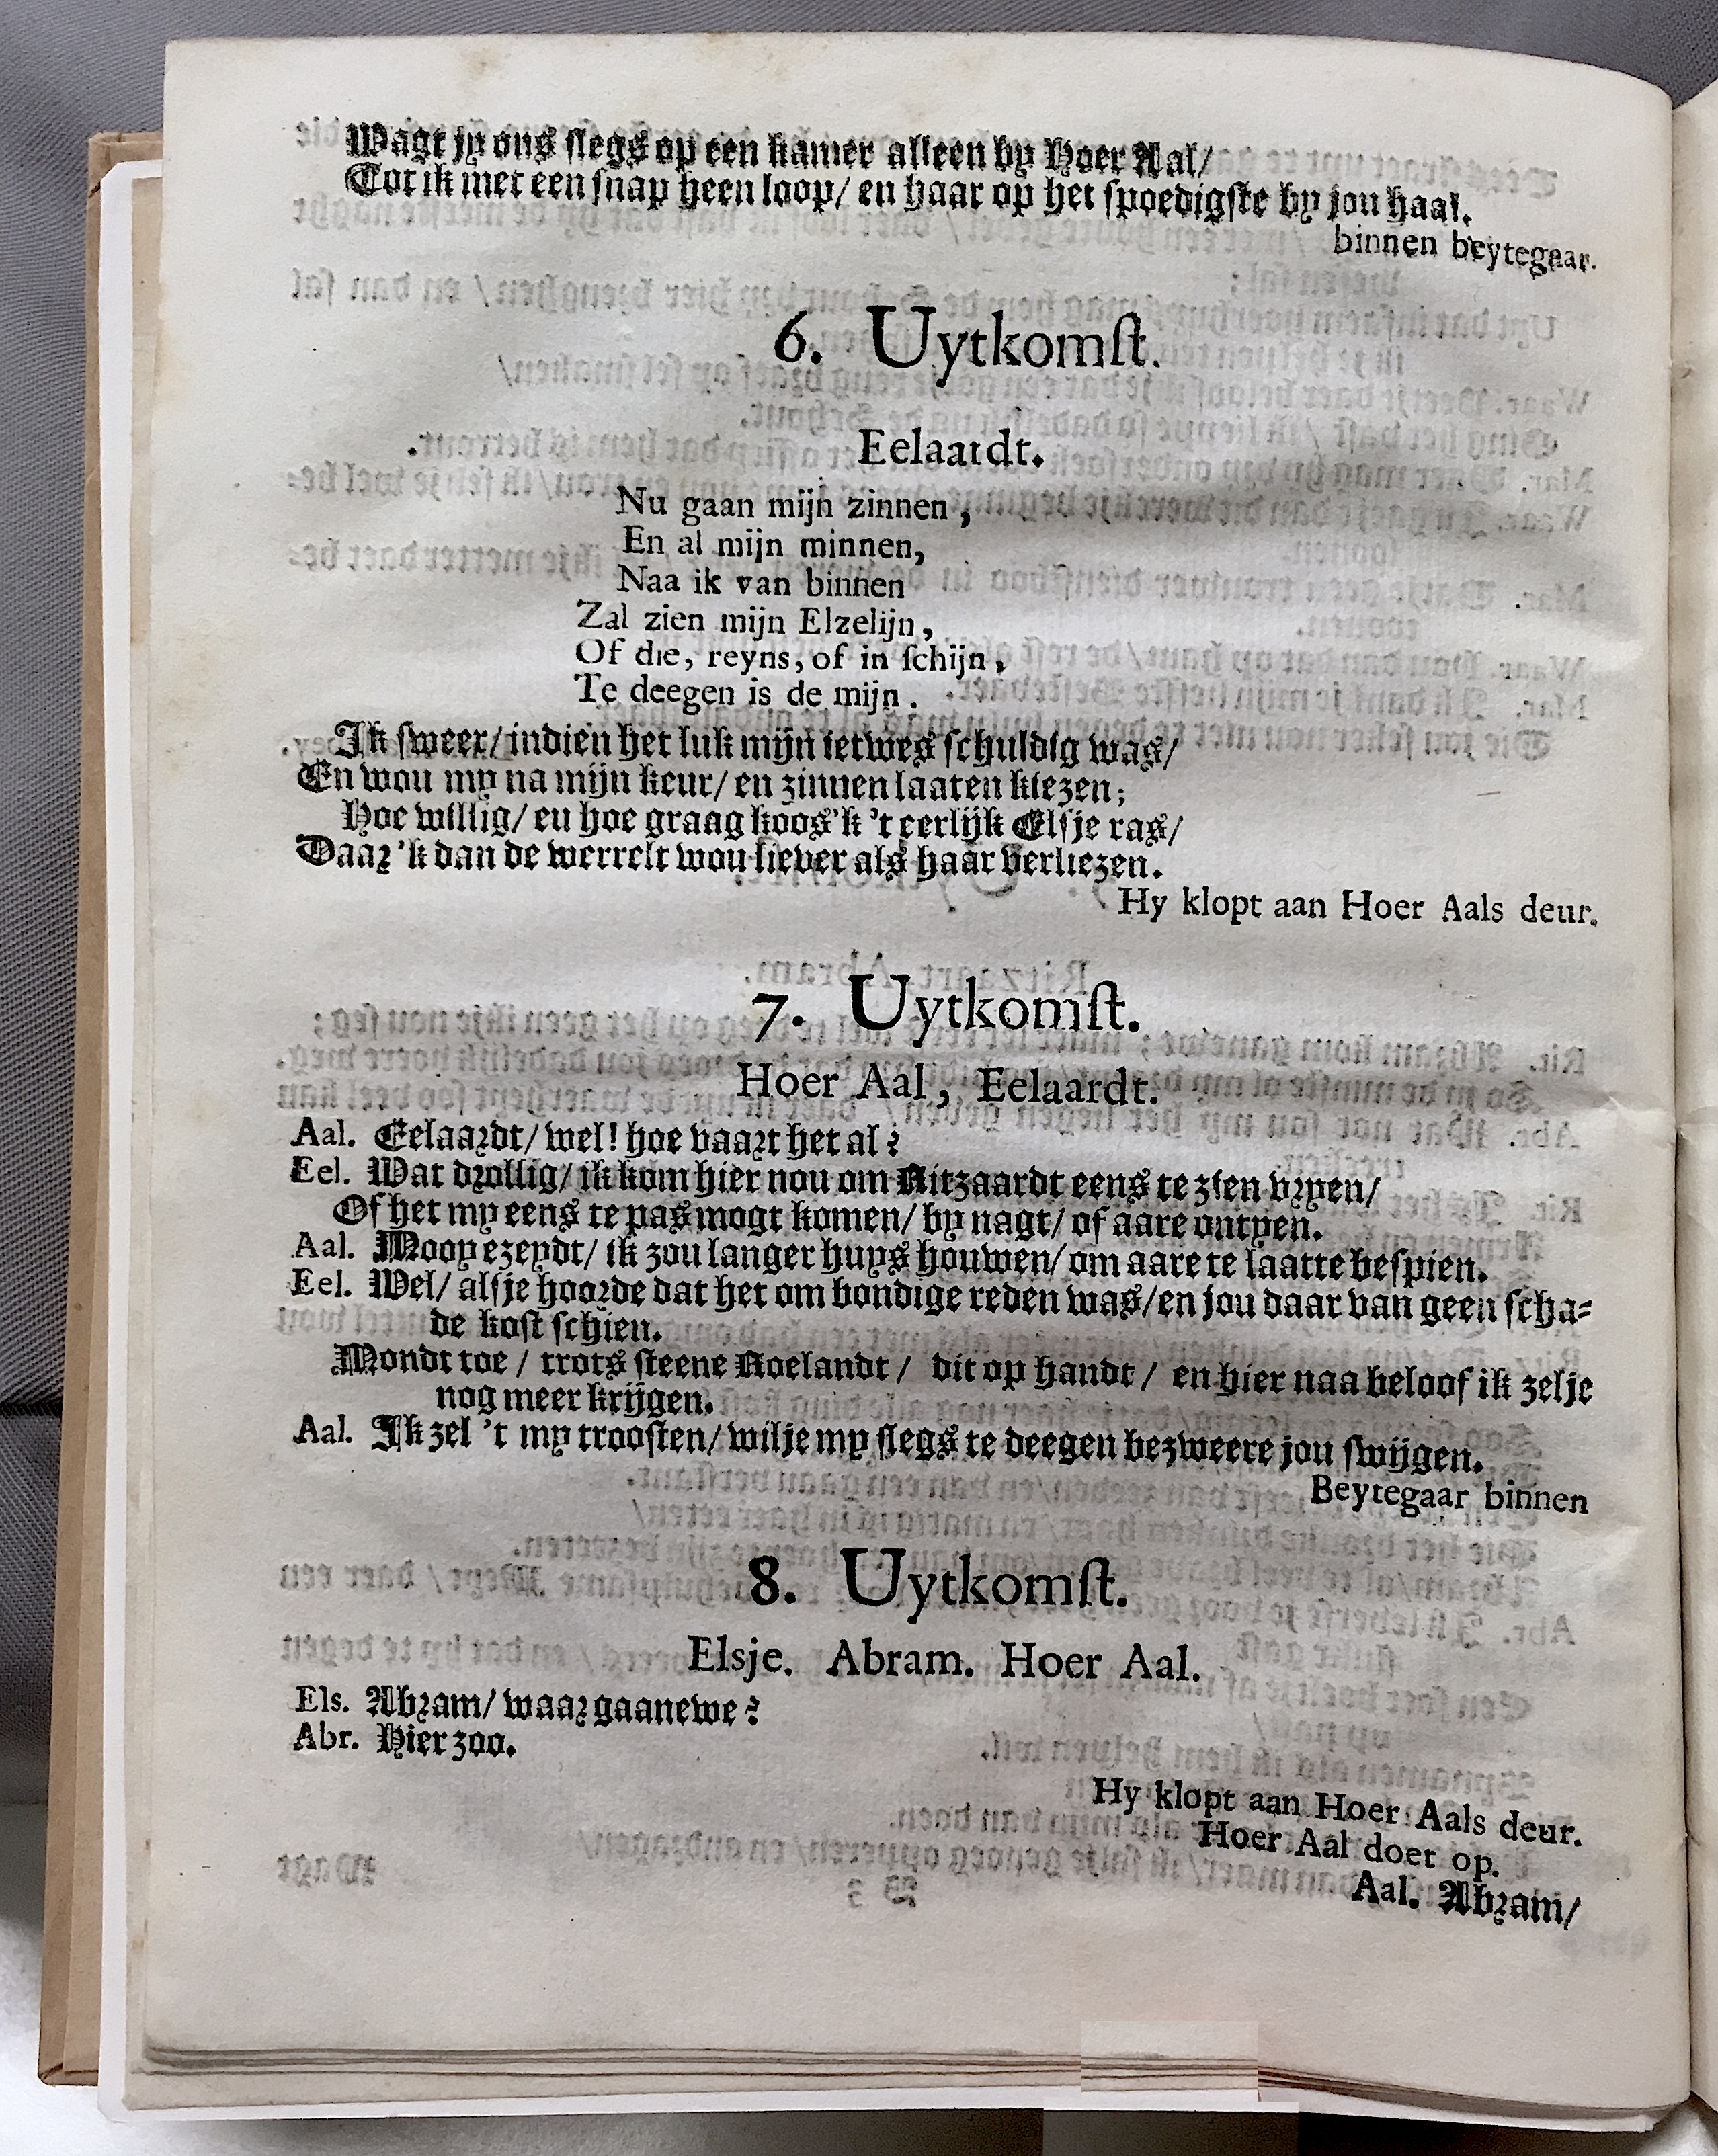 Wagt jy ons slegs op een kamer alleen by Hoer Aal/
Tot ik met een snap heen loop/ en haar op het spoedigste by jou haal.
binnen beytegaar.
6. Uytkomſt.
Eelaardt.
Nu gaan mijn zinnen,
En al mijn minnen,
Naa ik van binnen
Zal zien mijn Elzelijn,
Of die, reyns, of in ſchijn,
Te deegen is de mijn.
Ik ſweer/ indien het luk mijn ietwes ſchuldig was/
En wou my na mijn keur/ en zinnen laaten kiezen;
Hoe willig/ en hoe graag koos'k 't eerlijk Elſje ras/
Daar 'k dan de werrelt wou liever als haar verliezen.
Hy klopt aan Hoer Aals deur.
7. Uytkomſt.
Hoer Aal, Eelaardt.
Aal. Eelaardt/ wel! hoe vaart het al?
Eel. Wat drollig/ ik kom hier nou om Ritzaardt eens te zien vryen/
Of het my eens te pas mogt komen/ by nagt/ of aare ontyen.
Aal. Mooy ezeydt/ ik zou langer huys houwen/ om aare te laatte beſpien.
Eel. Wel/ alſje hoorde dat het om bondige reden was/ en jou daar van geen ſcha-
de koſt ſchien.
Mondt toe/ trots ſteene Roelandt/ dit op handt/ en hier naa beloof ik zelje
nog meer krijgen.
Aal. Ik zel 't my trooſten/ wilje my ſlegs te deegen bezweere jou ſwijgen.
Beytegaar binnen
8. Uytkomſt.
Elsje. Abram. Hoer Aal.
Els. Abram/ waar gaanewe?
Abr. Hier zoo.
Hy klopt aan Hoer Aals deur.
Hoer Aal doet op.
Aal. Abram/